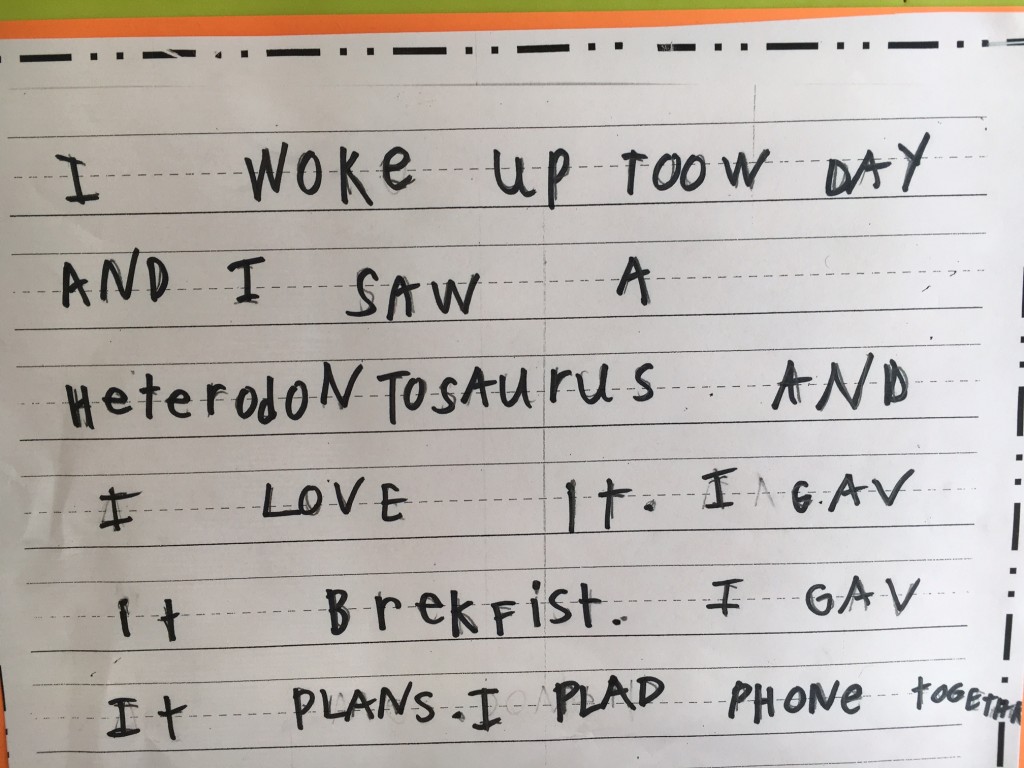 I WOKe up TOOW DAY
AND I SAW A
HeterodoNTosAurus AND
I LOVE It. I GAV
It BrekFist. I GAV
It PLANS. I PLAD PHONe toGETHR